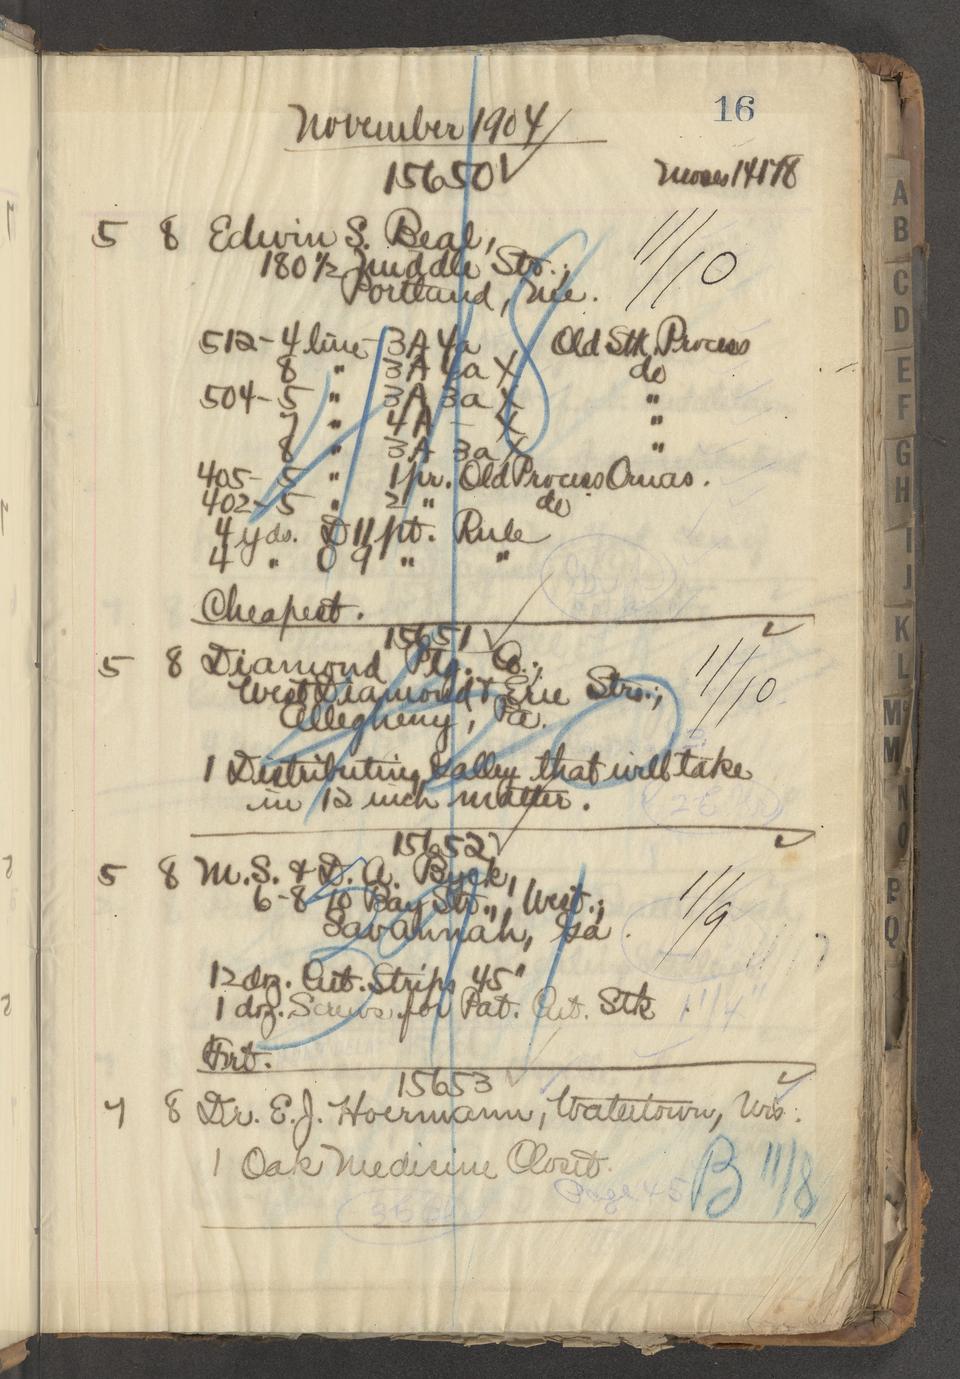 16
November 1904
15650 Moses 14178
5 8 Edwin S. Beal,
180 1/2 Middle Str.,
Portland, Me.
11/10
512-4 line 3A 4a Old Stk Process
8 " 3A 4a X do
504-5 " 3A 3a X "
7 " 4A - X "
8 " 3A 3a X "
405-5 " 1 pr. Old Process Ornas.
402-5 " 2 " do
4 yds. D 11 pt. Rule
4 " 0 9 " "
Cheapest.
15651
5 8 Diamond Ptg. Co.,
West Diamond & Erie Strs.,
Allegheny, Pa.
11/10
1 Distributing Galley that will take
in 12 inch matter.
15652
5 8 M.S. & D.A. Byck,
6-8-10 Bay Str., West.,
Savannah, Ga.
11/9
12 doz. Cut. Strips 45"
1 doz. Screws for Pat. Cut. Stk
Frt.
15653
7 8 Dr. E.J. Hoermann, Watertown, Wis.
1 Oak Medicine Closet.
B 11/8
Page 45
A
B
C
D
E
F
G
H
I
J
K
L
Mc
M
N
O
P
Q